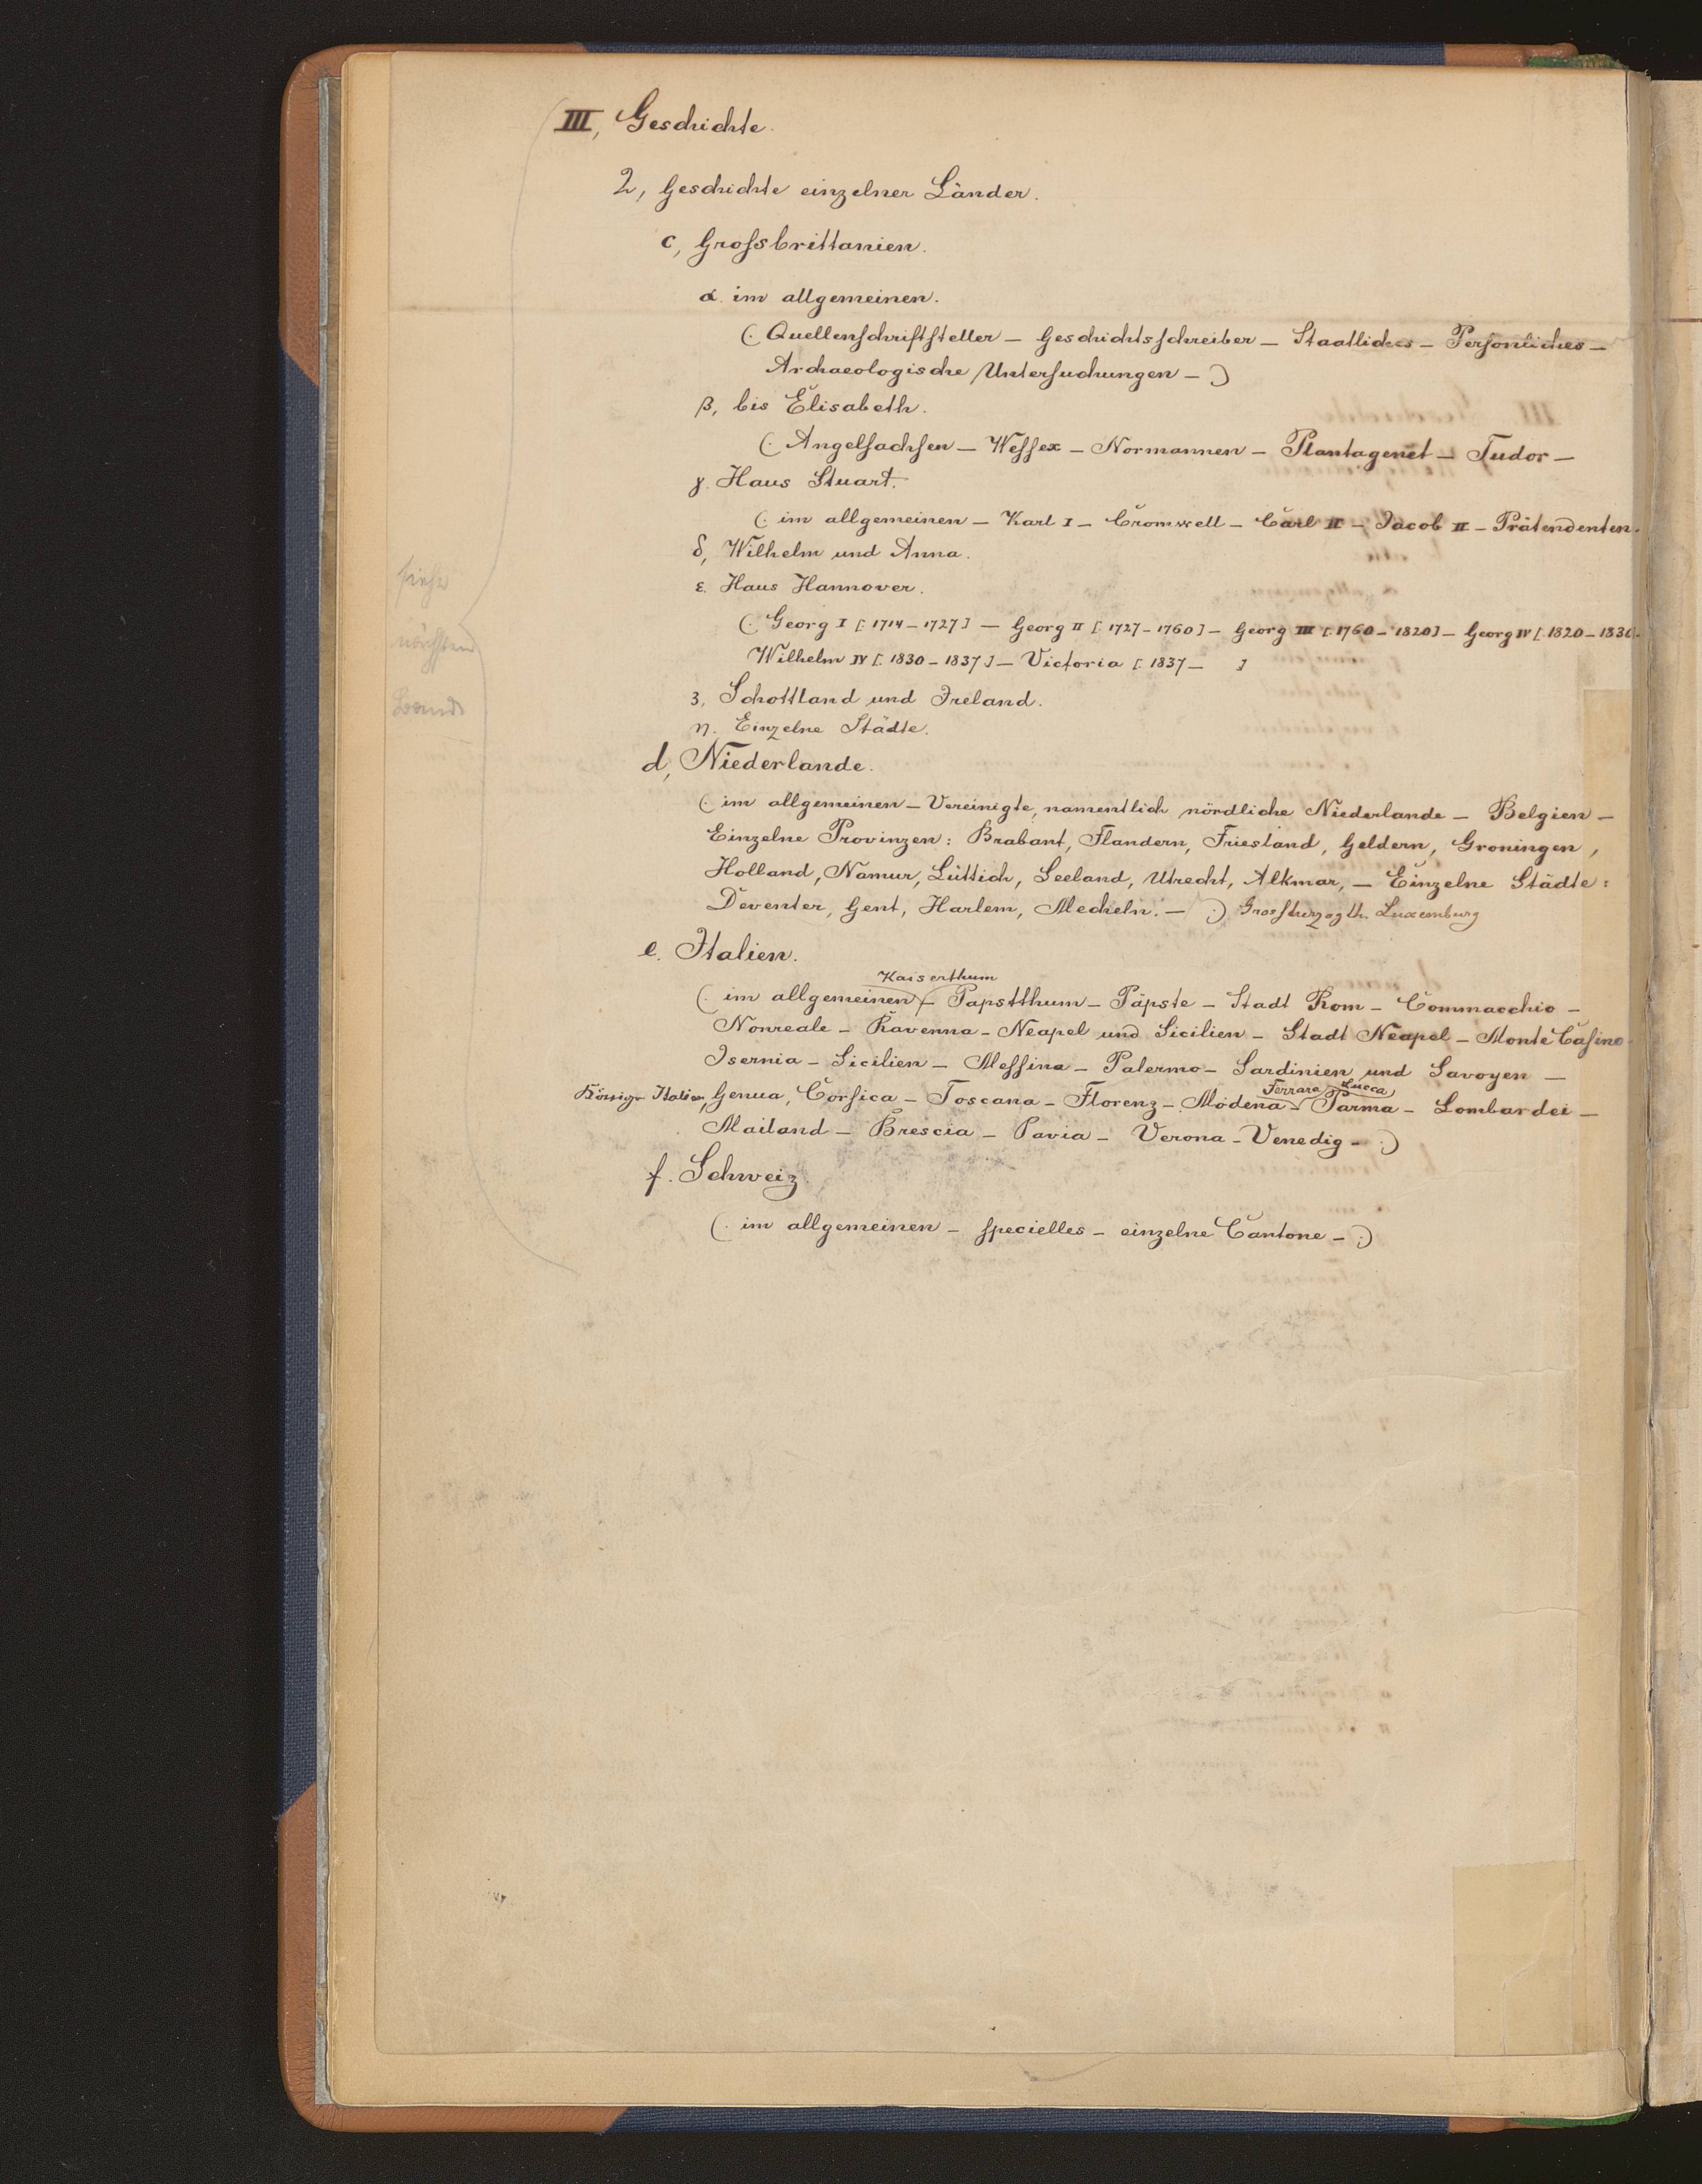 III, Geschichte.
2, Geschichte einzelner Länder.
c, Grofsbrittanien.
α. im allgemeinen.
(. Quellenschriftsteller – Geschichtsschreiber – Staatliches – Persönliches –
Archaeologische Untersuchungen – .)
β, bis Elisabeth.
(. Angelsachsen – Wessex – Normannen – Plantagenet – Tudor –
γ. Haus Stuart.
(. im allgemeinen – Karl I – Cromwell – Carl II – Jacob II – Prätendenten.
δ, Wilhelm und Anna.
ε. Haus Hannover.
(. Georg I [. 1714 – 1727] – Georg II [. 1727 – 1760] – Georg III [. 1760 – 1820] – Georg IV [. 1820 – 1830.
Wilhelm IV [. 1830 – 1837] – Victoria [. 1837 – ]
siehe
nächsten
Band
ʒ, Schottland und Ireland.
η. Einzelne Städte.
d, Niederlande.
(. im allgemeinen – Vereinigte, namentlich nördliche Niederlande – Belgien –
Einzelne Provinzen: Brabant, Flandern, Friesland, Geldern, Groningen,
Holland, Namur, Lüttich, Seeland, Utrecht, Alkmar, – Einzelne Städte:
Deventer, Gent, Harlem, Mecheln. – .) Grossherzogth. Luxemburg
e. Italien.
Kaiserthum
(. im allgemeinen – Papstthum – Päpste – Stadt Rom – Commacchio –
Nonreale – Ravenna – Neapel und Sicilien – Stadt Neapel – Monte Casino
Isernia – Sicilien – Messina – Palermo – Sardinien und Savoyen –
Ferrara Lucca
Königr Italien, Genua, Corsica – Toscana – Florenz – Modena – Parma – Lombardei –
Mailand – Brescia – Pavia – Verona – Venedig – .)
f. Schweiz.
(. im allgemeinen – specielles – einzelne Cantone – .)